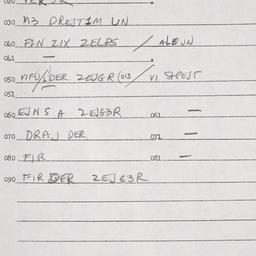 030 M3 DREJTIM UN
040 FEN ZIX ZELPS / ALEUN
041 —
050 VIFU/DER ZEJGR (013 / VI SHPEJT
051
060 EJNS A ZEJG3R 061 —
070 DRAJ DER 071 —
080 FIR 081 —
090 FIR DER ZEJG3R